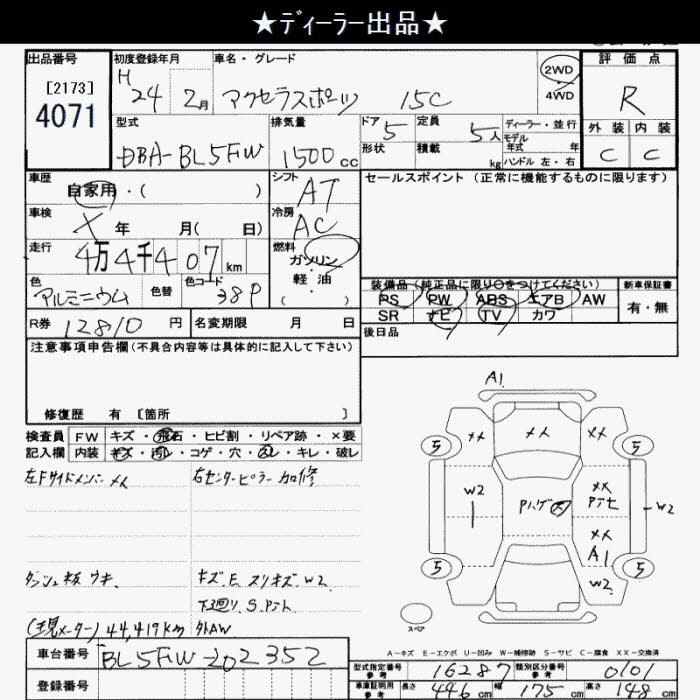 ★ディーラー出品★
出品番号 初度登録年月 車名・グレード 評価点
[2173]
4071
H 24 2月 アクセラスポーツ 15C 2WD 4WD R
型式 排気量 ドア 定員 ディーラー・並行 外装 内装
DBA-BL5FW 1500cc 5 5人 モデル年式 年 C C
形状 積載 kg ハンドル 左・右
車歴 シフト セールスポイント (正常に機能するものに限ります)
自家用・( ) AT
車検 冷房
X 年 月( 日) AC
走行 燃料
4万4千407km ガソリン・軽油
色 色替 色コード ( )
アルミニウム 38P
装備品(純正品に限り○をつけてください) 新車保証書
PS PW ABS エアB AW 有・無
SR ナビ TV カワ
R券 12810 円 名変期限 月 日 後日品
注意事項申告欄(不具合内容等は具体的に記入して下さい)
修復歴 有 [箇所 ]
検査員 FW キズ・飛石・ヒビ割・リペア跡・×要
記入欄 内装 キズ・汚レ・コゲ・穴・スレ・キレ・破レ
左Fサイドメンバー XX 右センターピラー 加修
ダッシュ板 ウキ. キズ.E スリキズ.W2
下廻り.S.Pテト
(現メーター) 44,419km 外AW
A1
5 XX XX XX 5
W2 Pハゲ XX Pアセ W2
XX A1
5 W2 5
スペア
A-キズ E-エクボ U-凹み W-補修跡 S-サビ C-腐食 XX-交換済
車台番号 BL5FW-202352
登録番号
型式指定番号 参考 16287 類別区分番号 参考 0101
車庫証明用 参考 長さ 446cm 幅 175cm 高さ 148cm